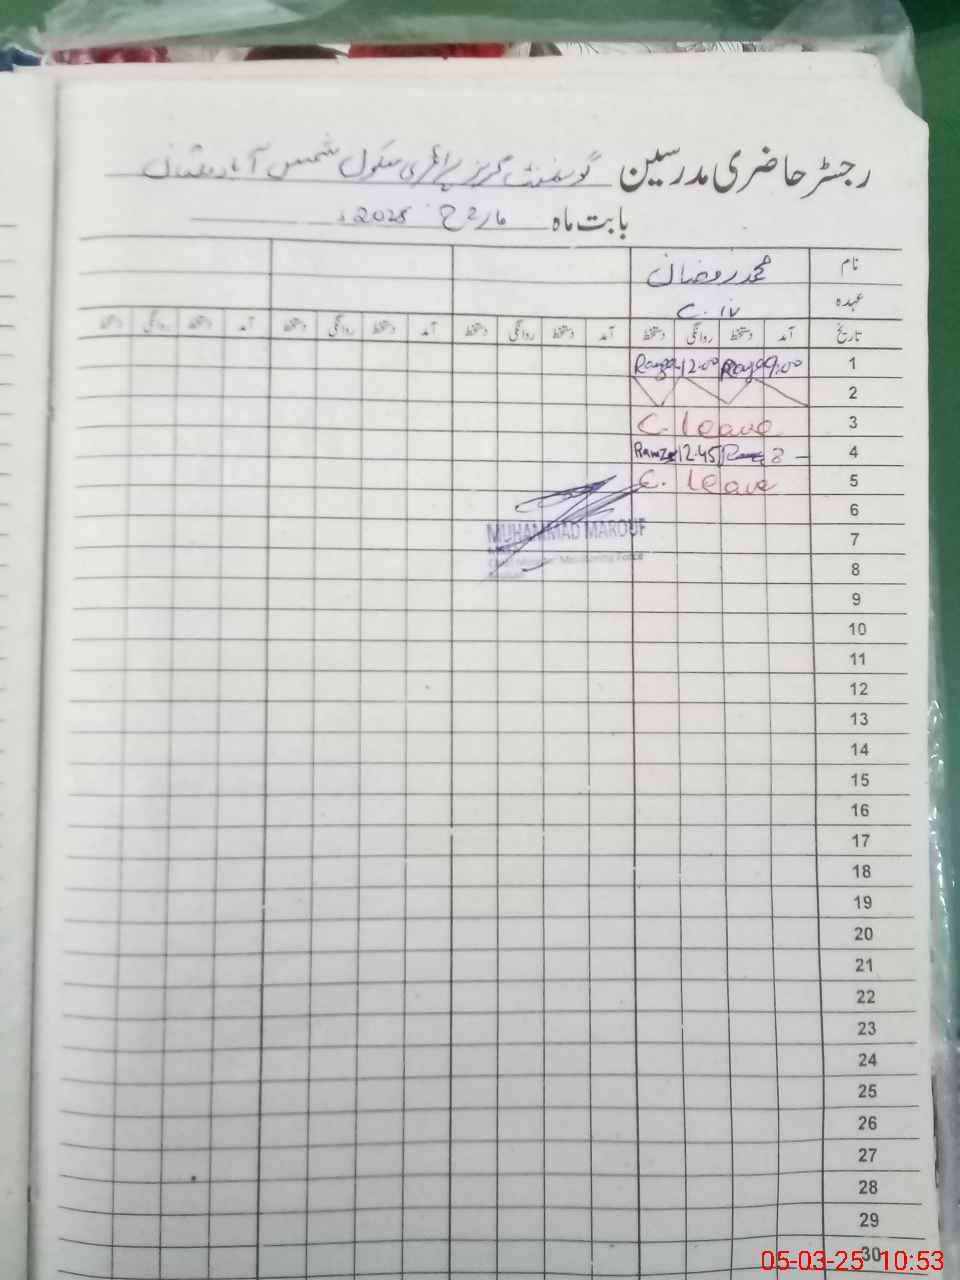 رجسٹر حاضری مدرسین گورنمنٹ گرلز پرائمری سکول شمس آباد ملتان
بابت ماہ مارچ 2025ء
نام محمد رمضان
عہدہ C. IV
تاریخ آمد دستخط روانگی دستخط آمد دستخط روانگی دستخط آمد دستخط روانگی دستخط آمد دستخط روانگی دستخط
1 9.00 12.00
2
3 C. leave
4 8 - 12.45
5 C. leave
6
MUHAMMAD MAROUF
7
Chief Minister Monitoring Force
8
9
10
11
12
13
14
15
16
17
18
19
20
21
22
23
24
25
26
27
28
29
30
05-03-25 10:53